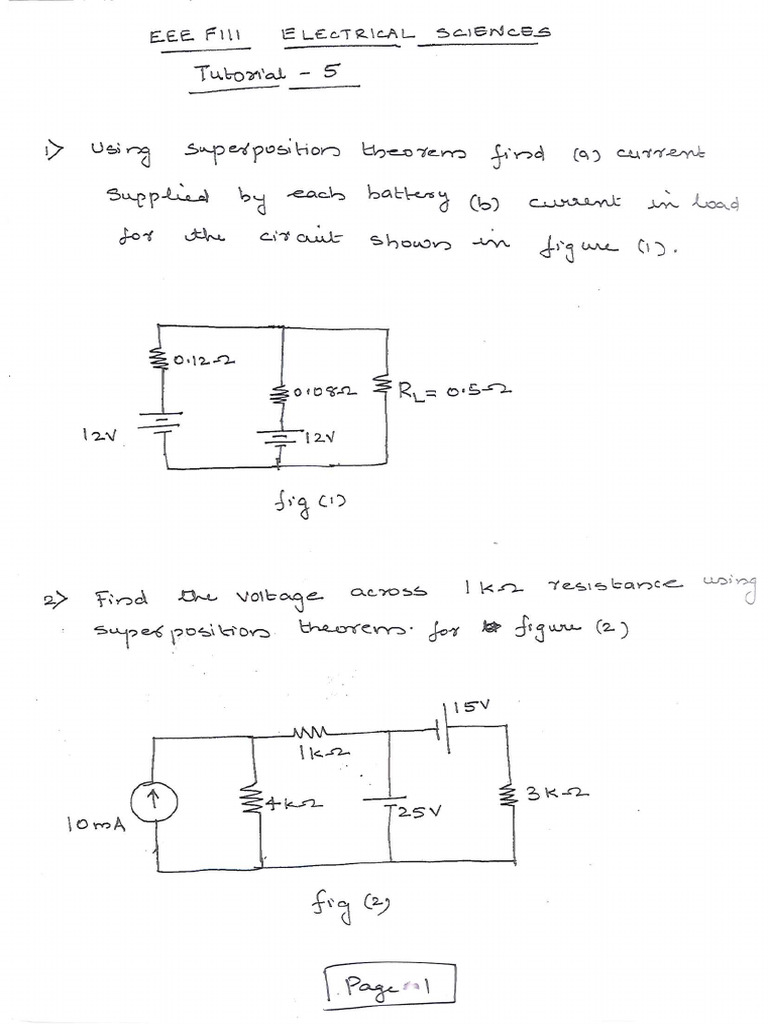 EEE F111 ELECTRICAL SCIENCES
Tutorial - 5
1) Using superposition theorem find (a) current
supplied by each battery (b) current in load
for the circuit shown in figure (1).
0.12Ω
0.08Ω
RL = 0.5Ω
12V
12V
fig (1)
2) Find the voltage across 1kΩ resistance using
superposition theorem. for figure (2)
15V
1kΩ
4kΩ
25V
3kΩ
10mA
fig (2)
Page 1